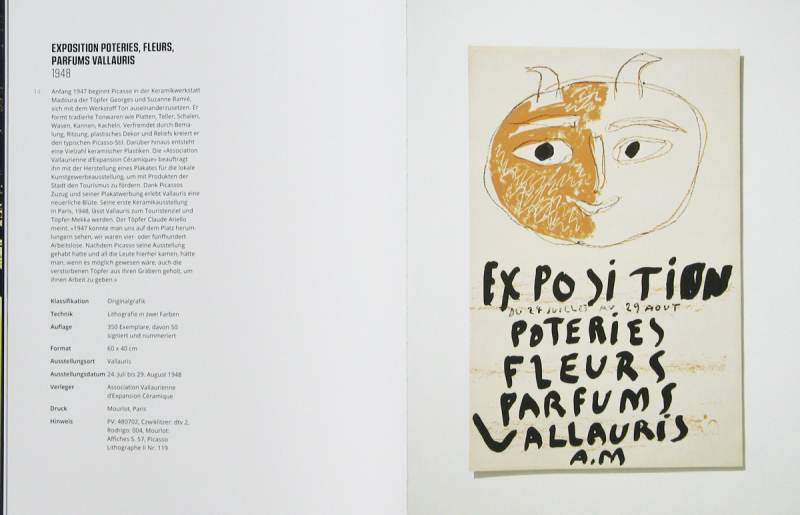 EXPOSITION POTERIES, FLEURS,
PARFUMS VALLAURIS
1948
13
Anfang 1947 beginnt Picasso in der Keramikwerkstatt
Madoura der Töpfer Georges und Suzanne Ramié,
sich mit dem Werkstoff Ton auseinanderzusetzen. Er
formt tradierte Tonwaren wie Platten, Teller, Schalen,
Vasen, Kannen, Kacheln. Verfremdet durch Bema-
lung, Ritzung, plastisches Dekor und Reliefs kreiert er
den typischen Picasso-Stil. Darüber hinaus entsteht
eine Vielzahl keramischer Plastiken. Die «Association
Vallaurienne d'Expansion Céramique» beauftragt
ihn mit der Herstellung eines Plakates für die lokale
Kunstgewerbeausstellung, um mit Produkten der
Stadt den Tourismus zu fördern. Dank Picassos
Zuzug und seiner Plakatwerbung erlebt Vallauris eine
neuerliche Blüte. Seine erste Keramikausstellung
in Paris, 1948, lässt Vallauris zum Touristenziel und
Töpfer-Mekka werden. Der Töpfer Claude Ariello
meint: «1947 konnte man uns auf dem Platz herum-
lungern sehen, wir waren vier- oder fünfhundert
Arbeitslose. Nachdem Picasso seine Ausstellung
gehabt hatte und all die Leute hierher kamen, hätte
man, wenn es möglich gewesen wäre, auch die
verstorbenen Töpfer aus ihren Gräbern geholt, um
ihnen Arbeit zu geben.»
Klassifikation Originalgrafik
Technik Lithografie in zwei Farben
Auflage 350 Exemplare, davon 50
signiert und nummeriert
Format 60 x 40 cm
Ausstellungsort Vallauris
Ausstellungsdatum 24. Juli bis 29. August 1948
Verleger Association Vallaurienne
d'Expansion Céramique
Druck Mourlot, Paris
Hinweis PV: 480702, Czwiklitzer: dtv 2,
Rodrigo: 004, Mourlot:
Affiches S. 57, Picasso
Lithographe II Nr. 119
EXPOSITION
DU 24 JUILLET AU 29 AOUT
POTERIES
FLEURS
PARFUMS
VALLAURIS
A.M